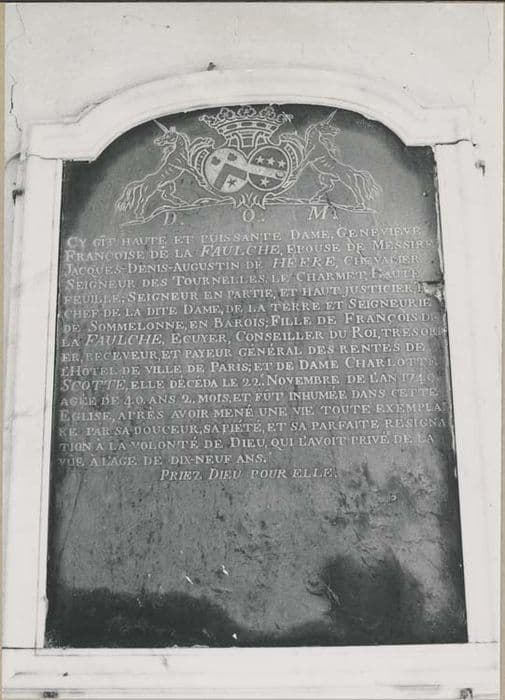 D. O. M.
CY GÎT HAUTE ET PUISSANTE DAME, GENEVIEVE
FRANÇOISE DE LA FAULCHE, EPOUSE DE MESSIRE
JACQUES-DENIS-AUGUSTIN DE HÈERE, CHEVALIER
SEIGNEUR DES TOURNELLES, LE CHARMET, HAUTE
FEUILLE, SEIGNEUR EN PARTIE, ET HAUT JUSTICIER,
CHEF DE LA DITE DAME, DE LA TERRE ET SEIGNEURIE
DE SOMMELONNE, EN BAROIS; FILLE DE FRANÇOIS DE
LA FAULCHE, ECUYER, CONSEILLER DU ROI, TRESORI
ER, RECEVEUR, ET PAYEUR GÉNÉRAL DES RENTES DE
L'HÔTEL DE VILLE DE PARIS; ET DE DAME CHARLOTTE
SCOTTE, ELLE DÉCEDA LE 22. NOVEMBRE DE L'AN 1740.
AGÉE DE 40. ANS 2. MOIS, ET FUT INHUMÉE DANS CETTE
EGLISE, APRÈS AVOIR MENÉ UNE VIE TOUTE EXEMPLAI
RE PAR SA DOUCEUR, SA PIETÉ, ET SA PARFAITE RESIGNA
TION A LA VOLONTÉ DE DIEU, QUI L'AVOIT PRIVÉ DE LA
VUE, A L'AGE DE DIX-NEUF ANS.
PRIEZ DIEU POUR ELLE.